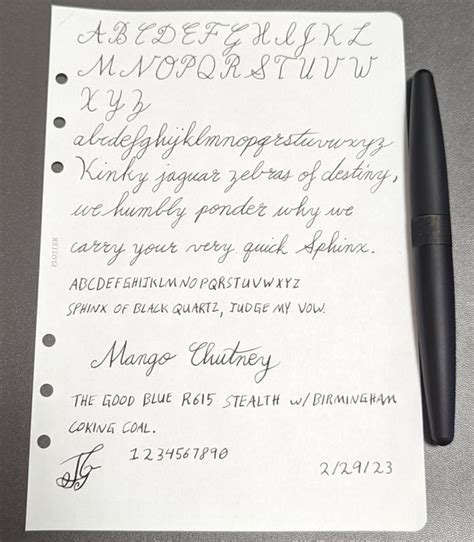 A B C D E F G H I J K L
M N O P Q R S T U V W
X Y Z
abcdefghijklmnopqrstuvwxyz
Kinky jaguar zebras of destiny,
we humbly ponder why we
carry your very quick Sphinx.
PLOTTER
ABCDEFGHIJKLMNOPQRSTUVWXYZ
SPHINX OF BLACK QUARTZ, JUDGE MY VOW.
Mango Chutney
THE GOOD BLUE R615 STEALTH W/BIRMINGHAM
COKING COAL.
1234567890
2/29/23